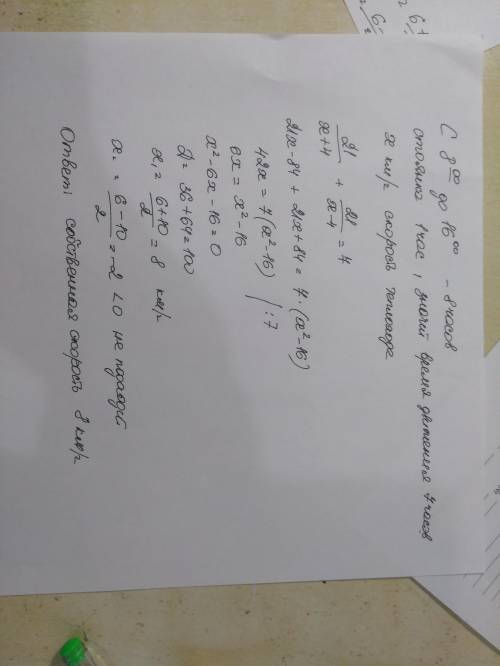 С 8⁰⁰ до 16⁰⁰ - 8 часов
стоянка 1 час, значит время движения 7 часов
x км/ч скорость теплохода
21/(x+4) + 21/(x-4) = 7
21x-84 + 21x+84 = 7·(x²-16)
42x = 7(x²-16) | :7
6x = x²-16
x²-6x-16=0
D = 36+64=100
x₁ = (6+10)/2 = 8 км/ч
x₂ = (6-10)/2 = -2 <0 не подходит
Ответ: собственная скорость 8 км/ч